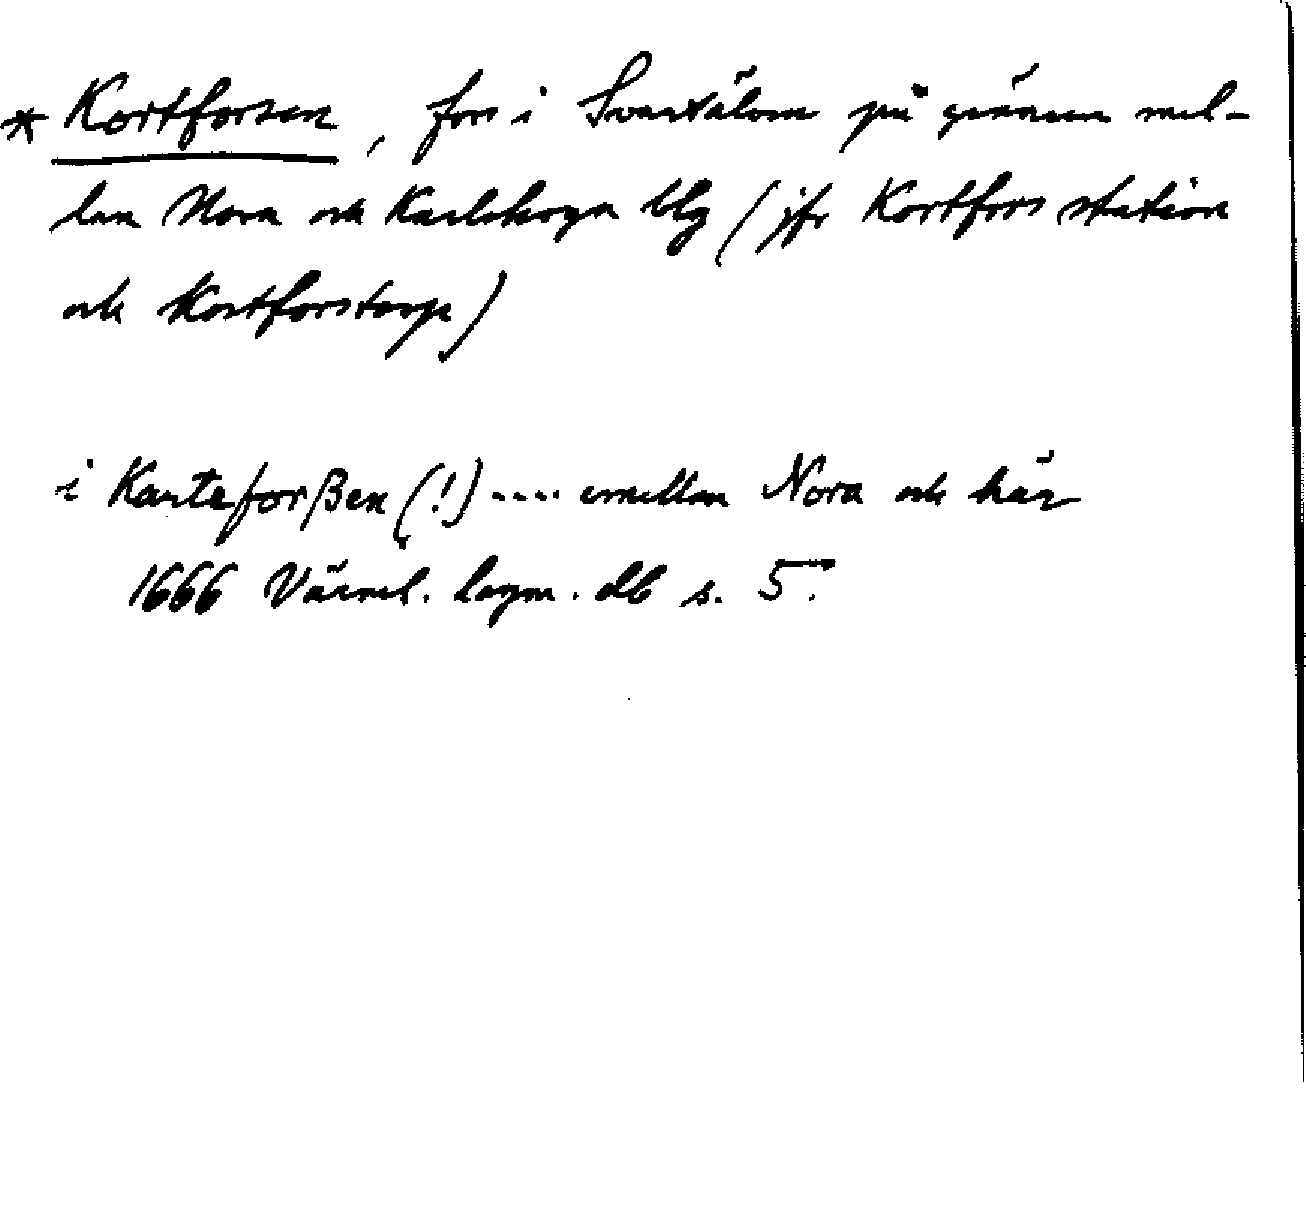 * Kortforsen, fors i Svartälven på gränsen mel-
lan Nora och Karlskoga blg (jfr Kortfors station
och Kortforstorp)
i Karteforßen (!) .... emellan Nora och här
1666 Värml. lagm. db s. 5.